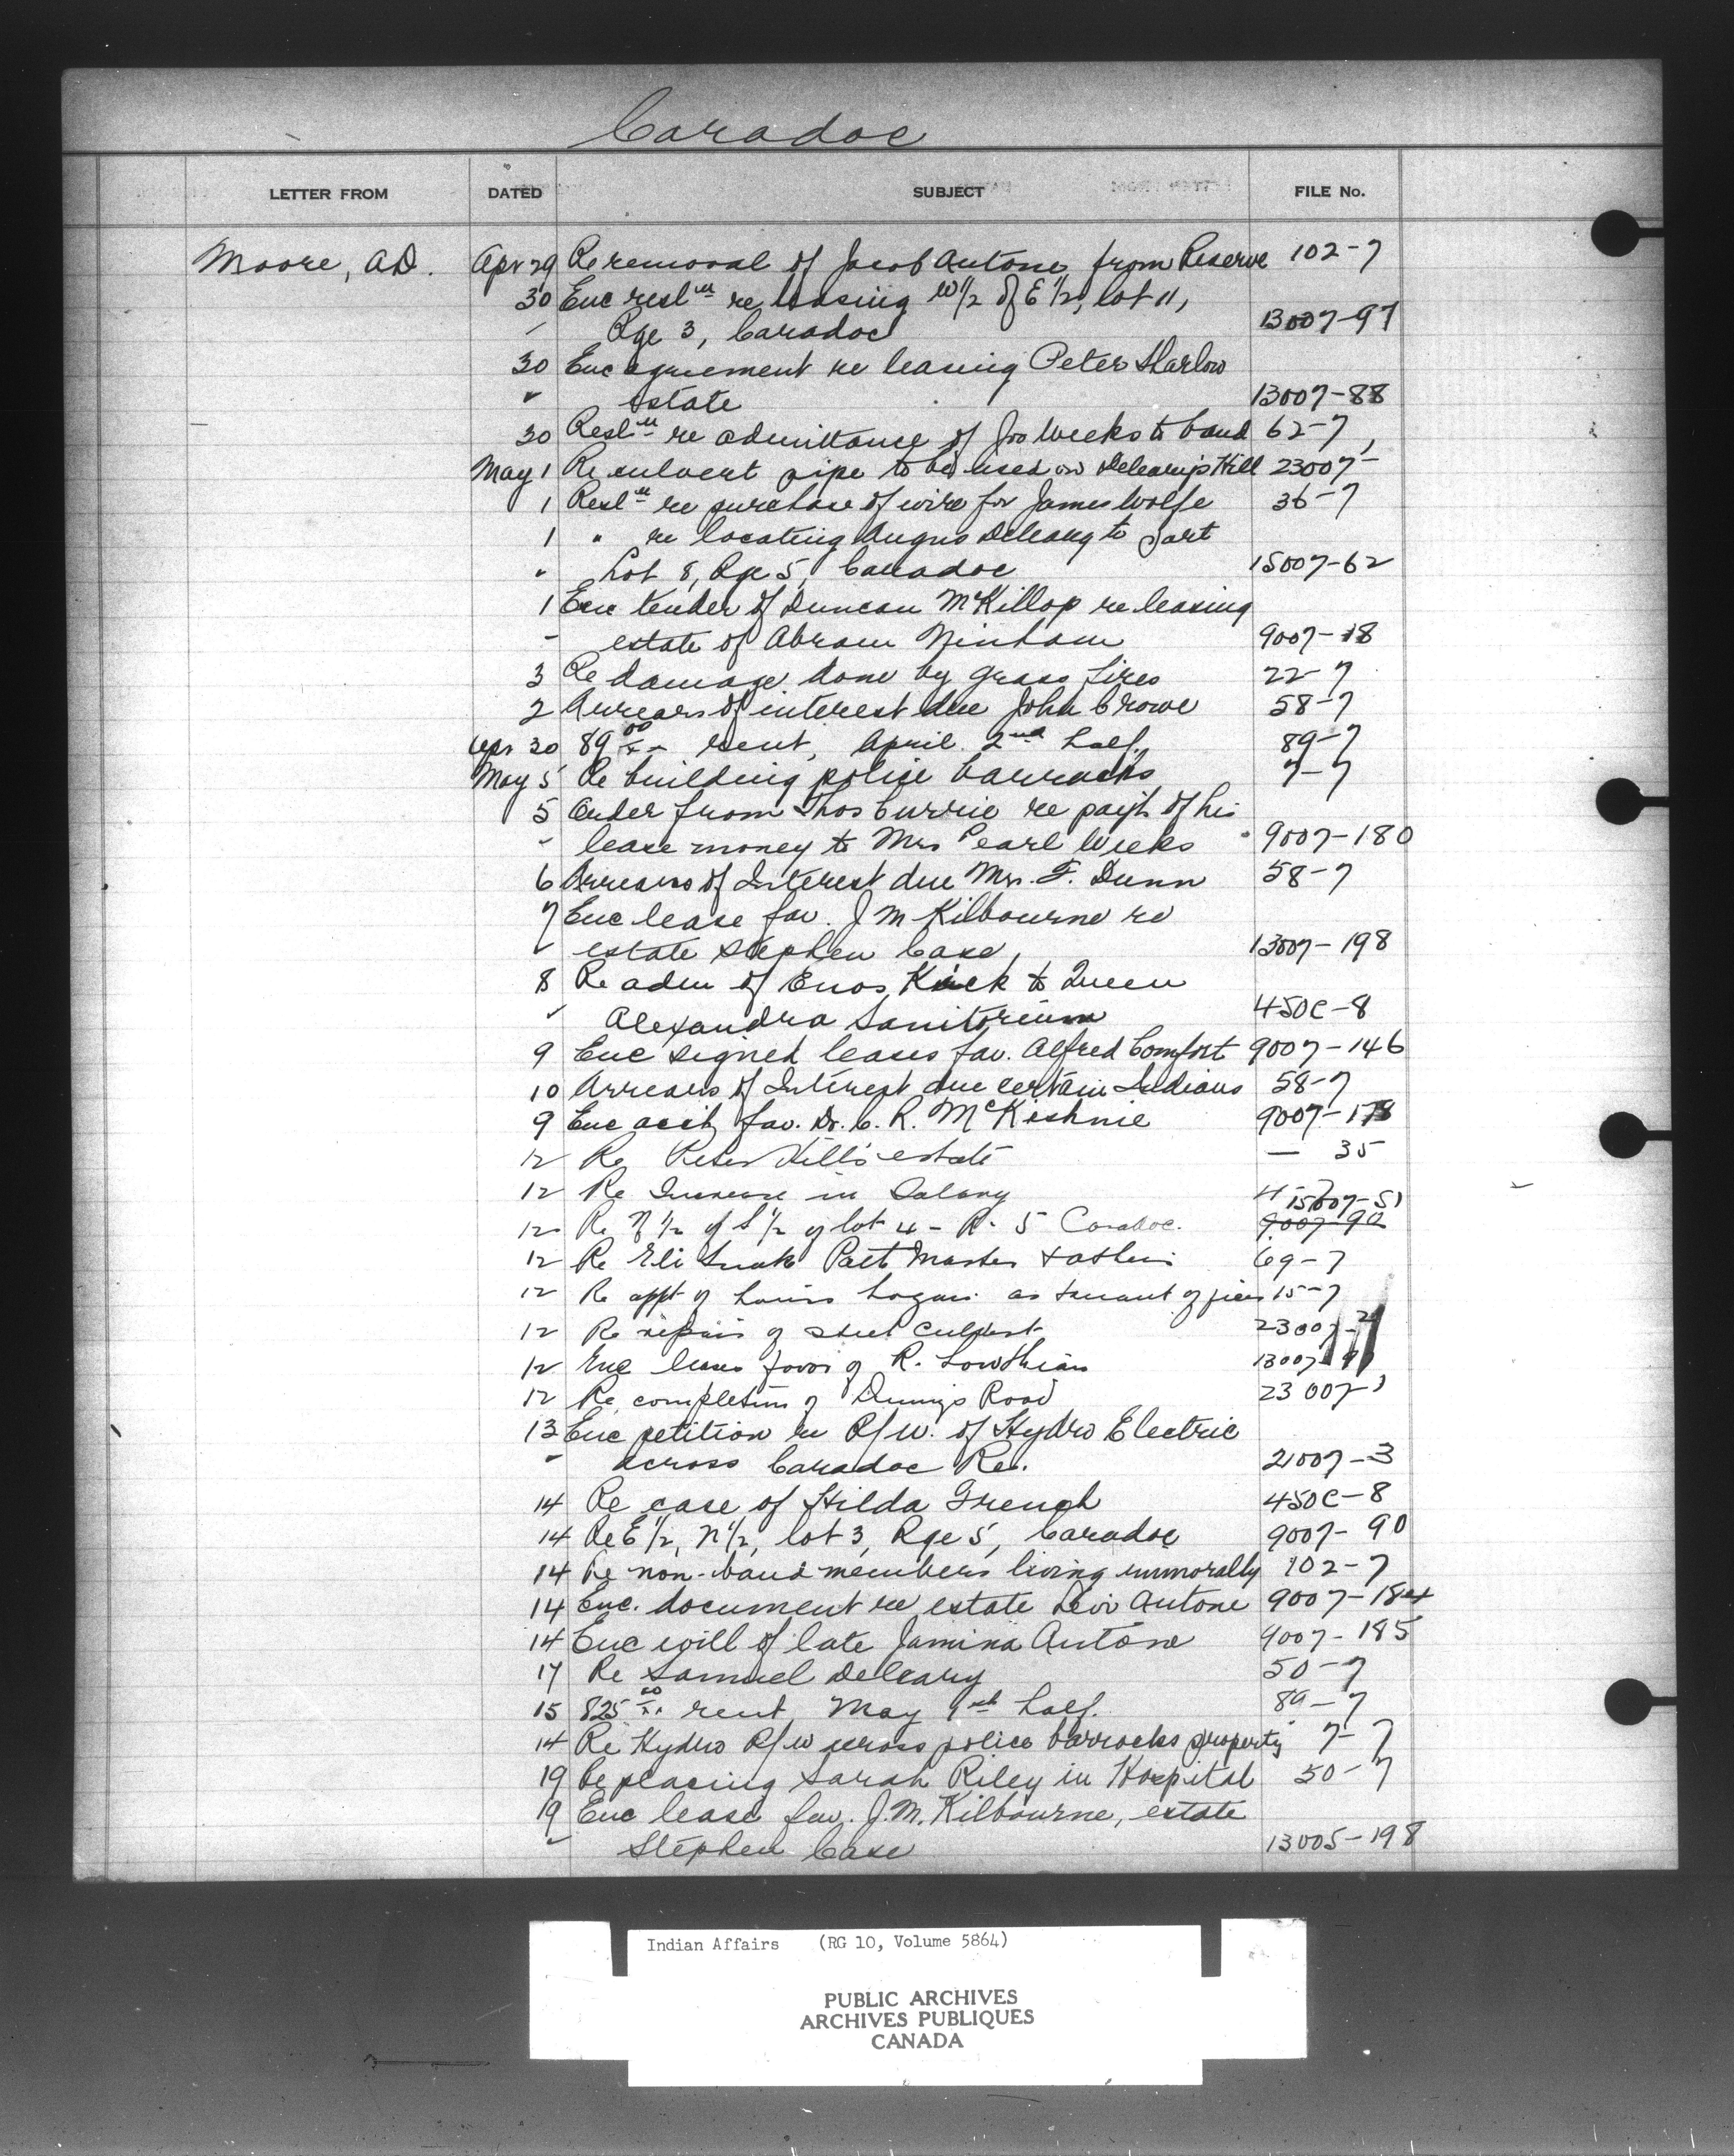 Caradoc
LETTER FROM DATED SUBJECT FILE No.
Moore, A.D. Apr 29 Re removal of Jacob Antone from Reserve 102-7
30 Enc resln re leasing W 1/2 of E 1/2, lot 11,
" Rge 3, Caradoc 13007-97
30 Enc agreement re leasing Peter Sharlow
" Estate 13007-88
30 Resln re admittance of Jno Weeks to band 62-7
May 1 Re culvert pipe to be used on Deleary's Hill 23007-
1 Resln re purchase of wire for James Wolfe 36-7
1 " re locating Angus Deleary to part
" Lot 8, Rge 5, Caradoc 15007-62
1 Enc tender of Duncan McKillop re leasing
" estate of Abram Ninham 9007-18
3 Re damage done by grass fires 22-7
2 Arrears of interest due John Crowe 58-7
Apr 30 89 00/xx rent, April 2nd half. 89-7
May 5 Re building police barracks 7-7
5 Order from Thos Currie re payt of his
" lease money to Mrs Pearl Weeks 9007-180
6 Arrears of Interest due Mrs. F. Dunn 58-7
7 Enc lease fav. J M Kilbourne re
" estate Stephen Case, 13007-198
8 Re adm of Enos Kick to Queen
" Alexandra Sanitorium 450C-8
9 Enc signed leases fav. Alfred Comfort 9007-146
10 Arrears of Interest due certain Indians 58-7
9 Enc acct fav. Dr. C. R. McKishnie 9007-178
12 Re Peter Hill's estate — 35
12 Re Increase in Salary 4-7
12 Re N 1/2 of S 1/2 of lot 4 - R. 5 Caradoc. 15007-51 9007-90
12 Re Eli Snake Path Master & others 69-7
12 Re appt of Louis Logan as truant officer 15-7
12 Re repairs of steel culvert 23007-
12 Enc leases favor of R. Lowthian 13007-
12 Re completion of Dunny's Road 23007-
13 Enc petition re R/W. of Hydro Electric
" across Caradoc Re. 21007-3
14 Re case of Hilda French 450C-8
14 Re E 1/2, N 1/2, lot 3, Rge 5, Caradoc 9007-90
14 Re non-band members living immorally 102-7
14 Enc. document re estate Levi Antone 9007-184
14 Enc will of late Jamina Antone 9007-185
17 Re Samuel Deleary 50-7
15 825 00/xx rent, May 1st half. 89-7
14 Re Hydro R/W across police barracks property 7-7
19 Re placing Sarah Riley in Hospital 50-7
19 Enc lease fav. J.M. Kilbourne, estate
" Stephen Case 13005-198
Indian Affairs (RG 10, Volume 5864)
PUBLIC ARCHIVES
ARCHIVES PUBLIQUES
CANADA